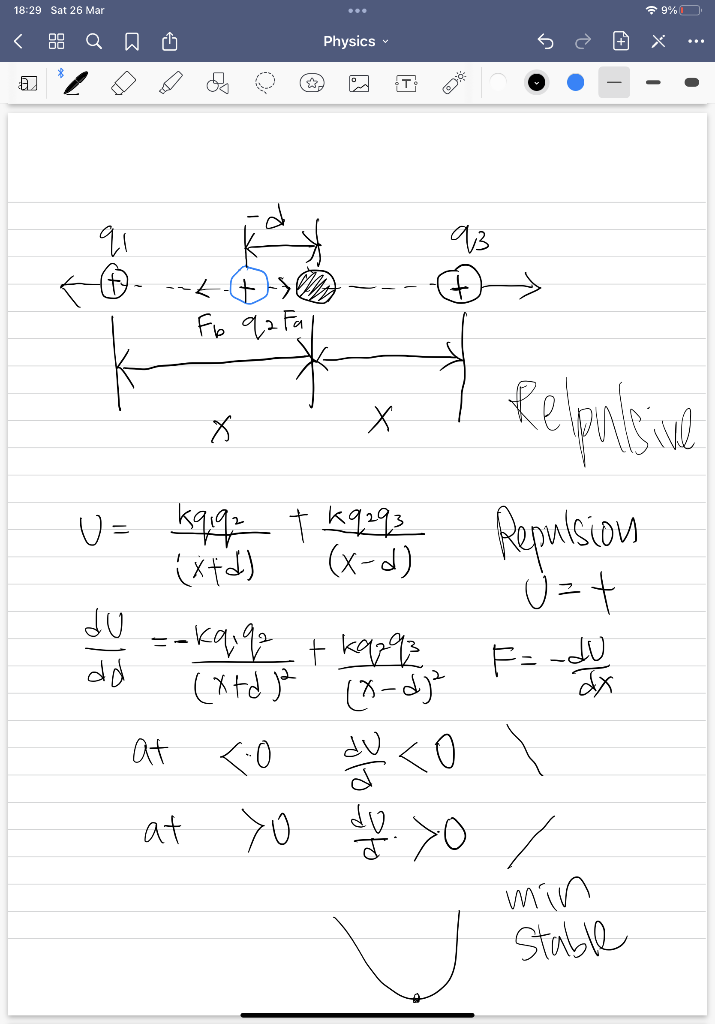 18:29 Sat 26 Mar
9%
Physics
T
-d
q1 q3
+ + +
Fb q2 Fa
x x
Relpulsive
U = kq1q2/(x+d) + kq2q3/(x-d) Repulsion
U = +
dU/dd = -kq1q2/(x+d)² + kq2q3/(x-d)² F = -dU/dx
at <0 dU/d <0 \
at >0 dU/d >0 /
min
stable